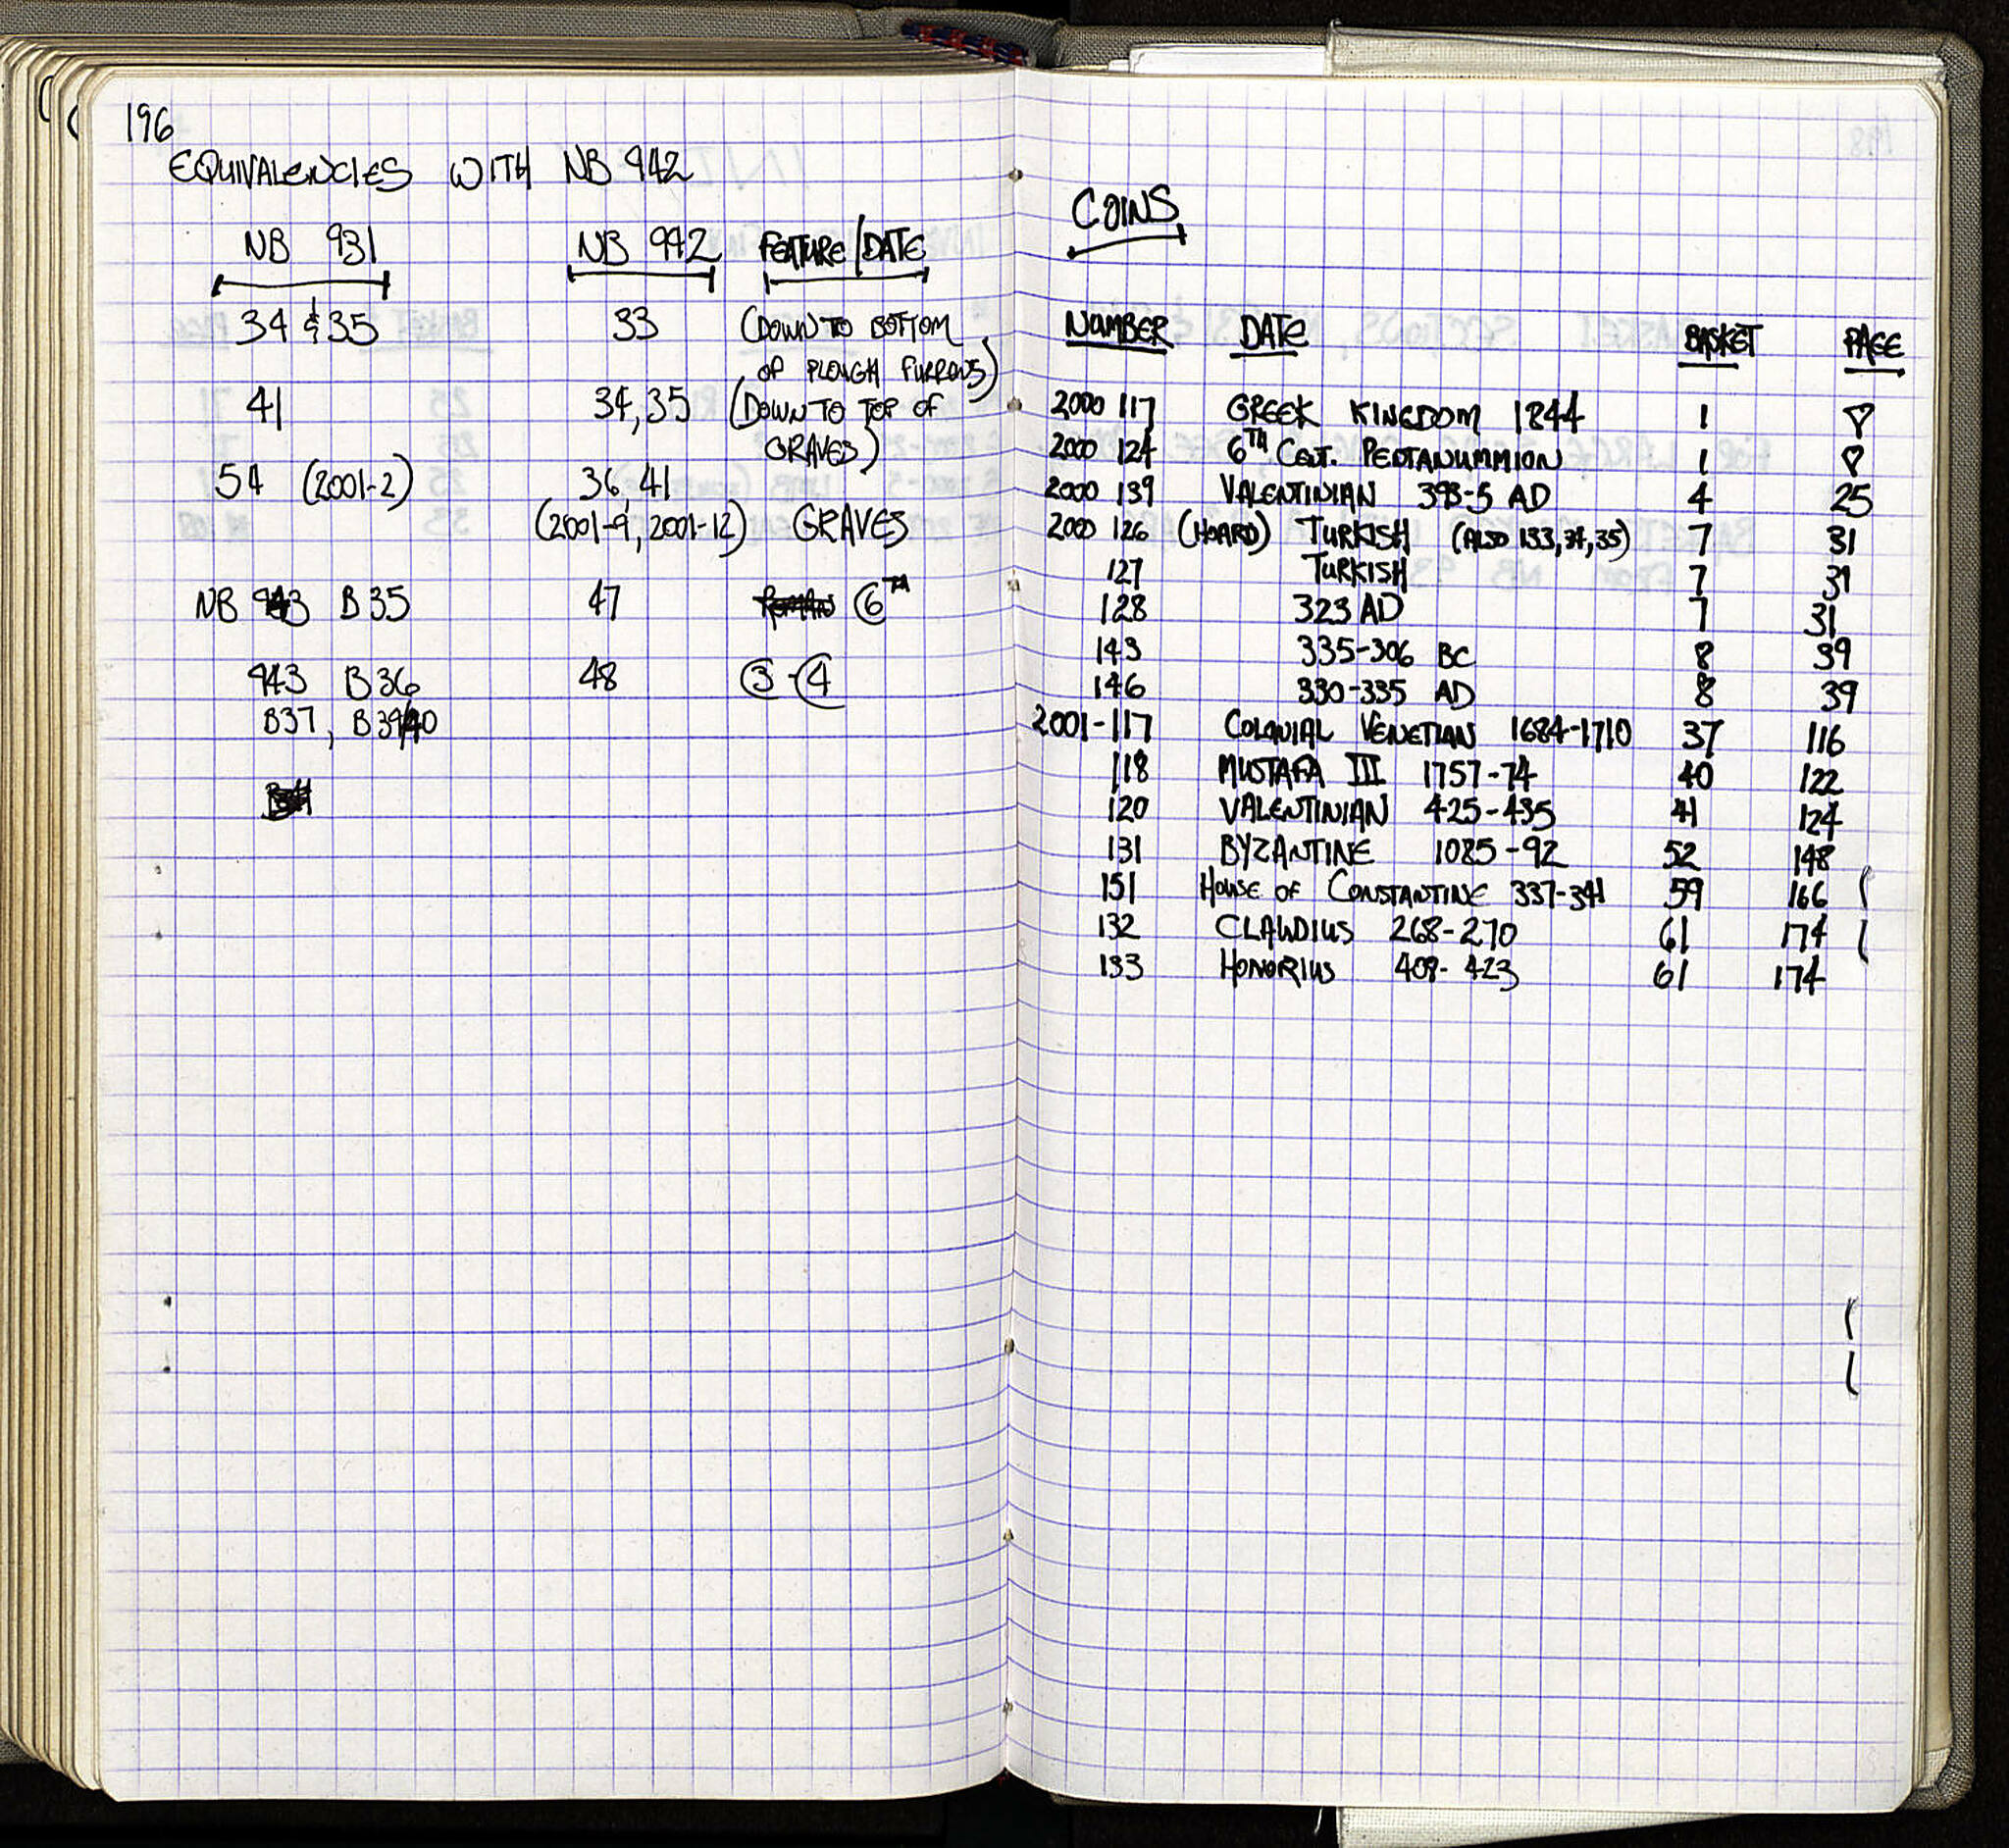 196
EQUIVALENCIES WITH NB 942
NB 931 NB 942 FEATURE/DATE
34 & 35 33 (DOWN TO BOTTOM
OF PLOUGH FURROWS)
41 34, 35 (DOWN TO TOP OF
GRAVES)
54 (2001-2) 36, 41
(2001-9, 2001-12) GRAVES
NB 943 B35 47 6TH
943 B36 48 3-4
B37, B39/40
COINS
NUMBER DATE BASKET PAGE
2000 117 GREEK KINGDOM 1844 1
2000 124 6TH CENT. PENTANUMMION 1
2000 139 VALENTINIAN 393-5 AD 4 25
2000 126 (HOARD) TURKISH (ALSO 133, 34, 35) 7 31
127 TURKISH 7 31
128 323 AD 7 31
143 335-306 BC 8 39
146 330-335 AD 8 39
2001-117 COLONIAL VENETIAN 1684-1710 37 116
118 MUSTAFA III 1757-74 40 122
120 VALENTINIAN 425-435 41 124
131 BYZANTINE 1085-92 52 148
151 HOUSE OF CONSTANTINE 337-341 59 166
132 CLAUDIUS 268-270 61 174
133 HONORIUS 408-423 61 174